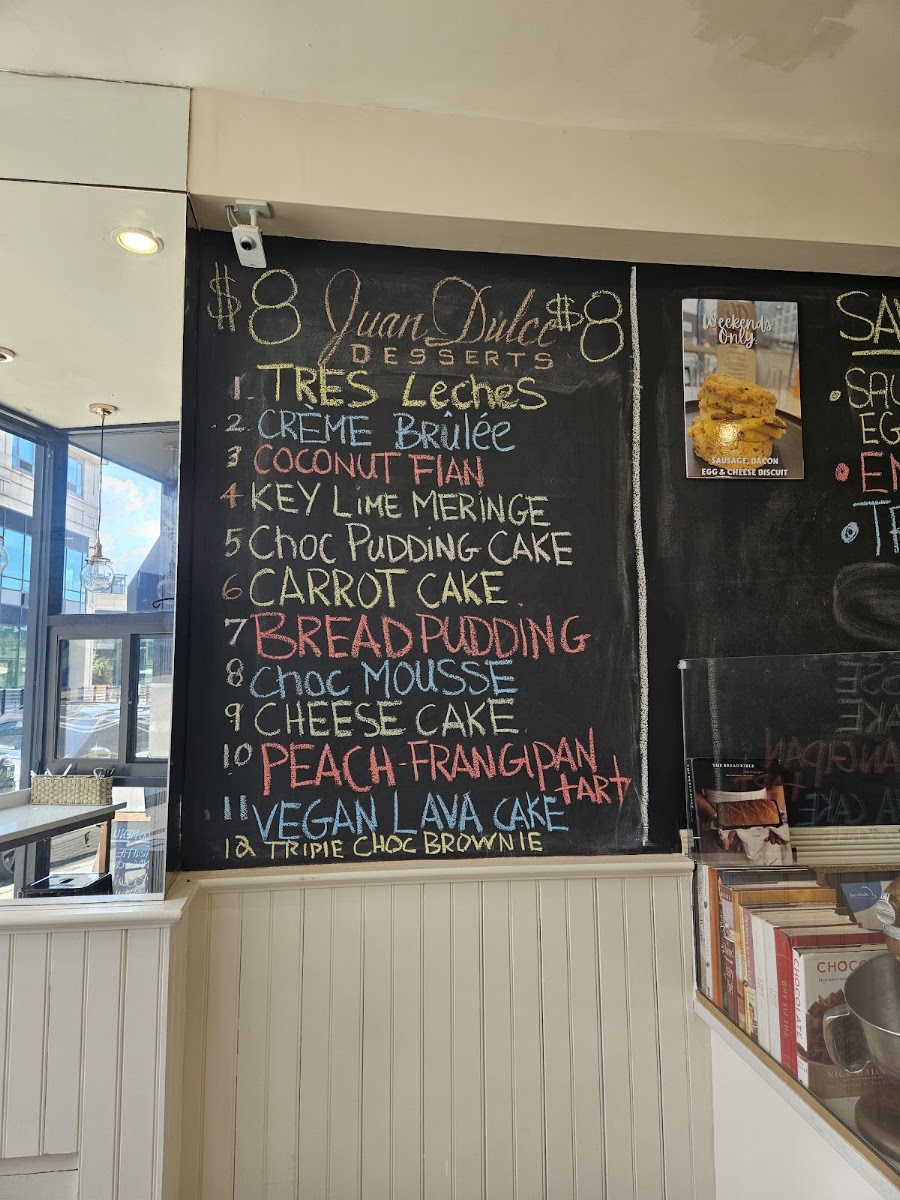 $8 Juan Dulce $8
DESSERTS
1. TRES LecheS
2 CRÈME BRûLée
3 COCONUT FlAN
4 KEY LiME MERINGE
5 Choc PUDDiNG CAKE
6 CARROT CAKE
7 BREAD PUDDING
8 Choc MOUSSE
9 CHEESE CAKE
10 PEACH-FRANGIPAN
tARt
11 VEGAN LAVA CAKE
12 TRIPlE CHOC BROWNIE
Weekends
Only.
SAUSAGE, BACON
EGG & CHEESE BISCUIT
SAV
• SAU
EG
• EN
• TR
THE BREAD BIBLE
CHOCO
CHOCOLATE